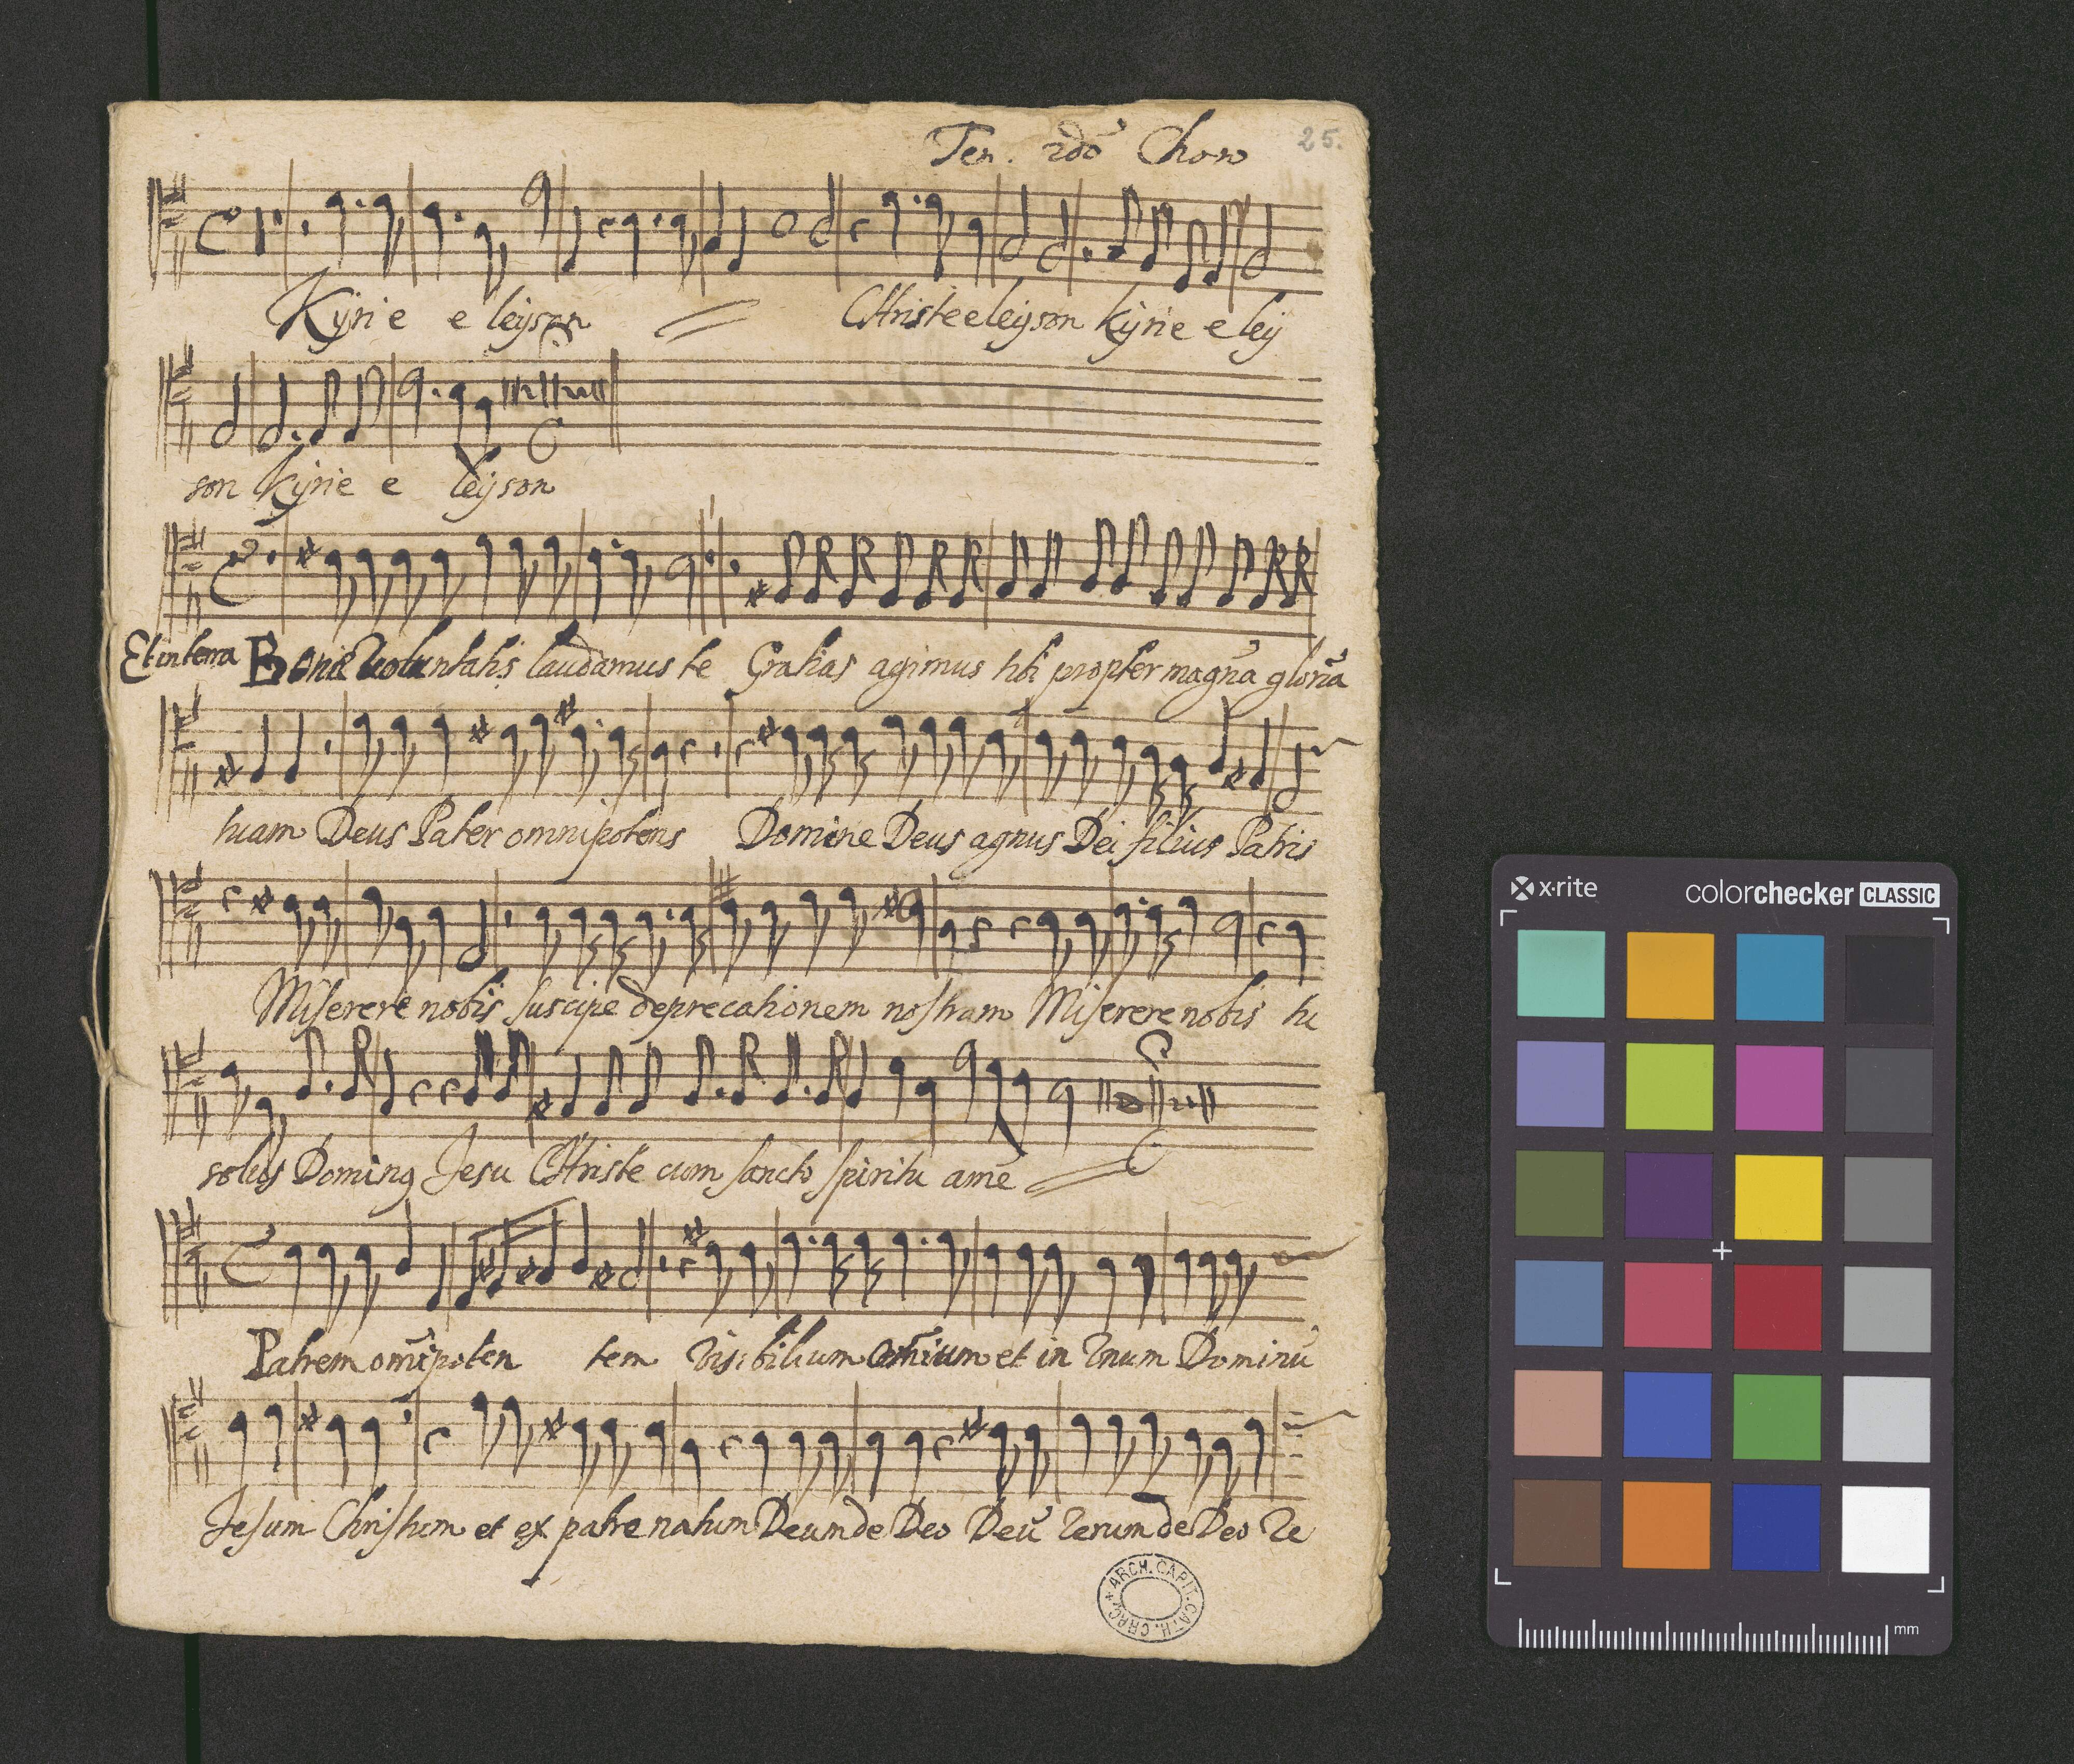 Ten. 2dõ Chori
25.
Kÿrie e leÿson Christe eleÿson kÿrie e leÿ
son kÿrie e leÿson
Et in terra Bonæ voluntatis laudamus te Gratias agimus tibi propter magnã gloriã
tuam Deus Pater omnipotens Domine Deus agnus Dei filius Patris
Miserere nobis suscipe deprecationem nostram Miserere nobis tu
solus Dominꝰ Jesu Christe cum sancto spiritu amẽ
Patrem omĩpoten tem visibilium omnium et in vnum Dominũ
Jesum Christum et ex patre natum Deum de Deo Deũ verum de Deo ve
ARCH. CAPIT. CATH. CRAC.
x·rite colorchecker CLASSIC
mm